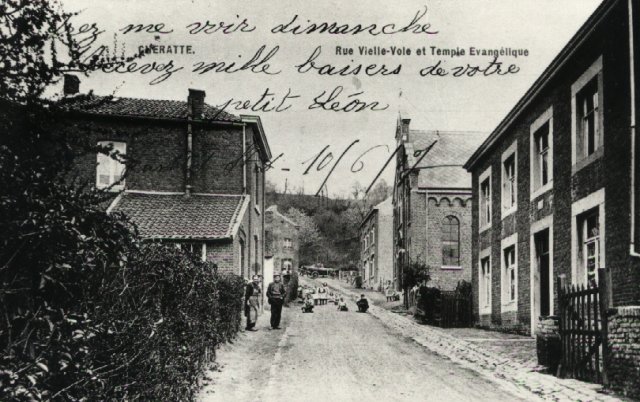 me voir dimanche
CHERATTE. Rue Vielle-Voie et Temple Evangélique
Recevez mille baisers de votre
petit Léon
10/6